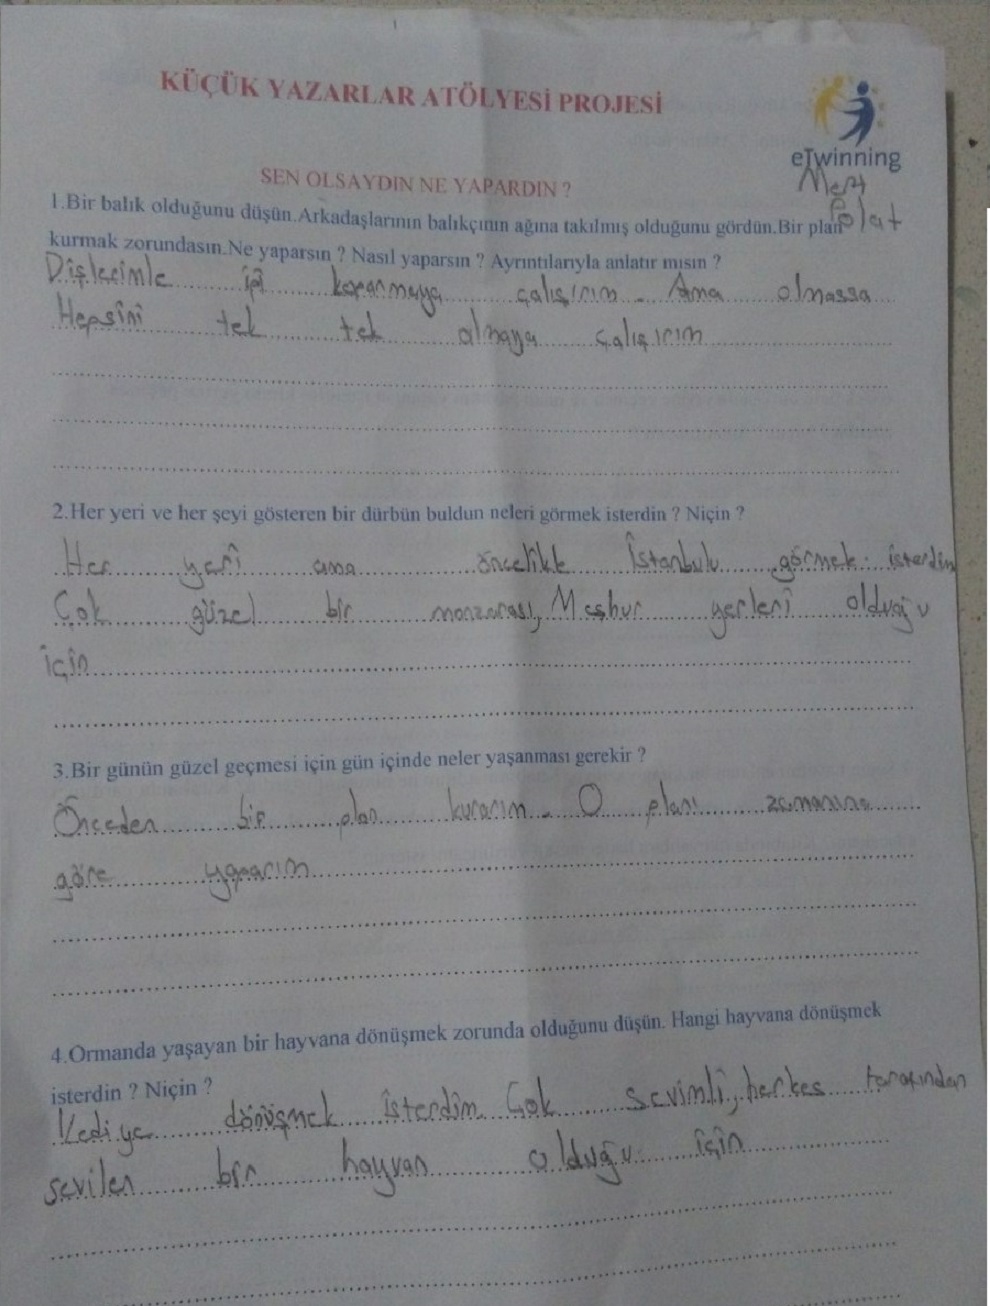 KÜÇÜK YAZARLAR ATÖLYESİ PROJESİ
eTwinning
Mert
Polat
SEN OLSAYDIN NE YAPARDIN ?
1.Bir balık olduğunu düşün.Arkadaşlarının balıkçının ağına takılmış olduğunu gördün.Bir plan
kurmak zorundasın.Ne yaparsın ? Nasıl yaparsın ? Ayrıntılarıyla anlatır mısın ?
Dişlerimle ipi koparmaya çalışırım. Ama olmassa
Hepsini tek tek almaya çalışırım
2.Her yeri ve her şeyi gösteren bir dürbün buldun neleri görmek isterdin ? Niçin ?
Her yeri ama öncelikle İstanbulu görmek isterdim
Çok güzel bir manzarası, Meşhur yerleri olduğu
için
3.Bir günün güzel geçmesi için gün içinde neler yaşanması gerekir ?
Önceden bir plan kurarım. O planı zamanına
göre yaparım
4.Ormanda yaşayan bir hayvana dönüşmek zorunda olduğunu düşün. Hangi hayvana dönüşmek
isterdin ? Niçin ?
Kediye dönüşmek isterdim Çok sevimli, herkes tarafından
sevilen bir hayvan olduğu için